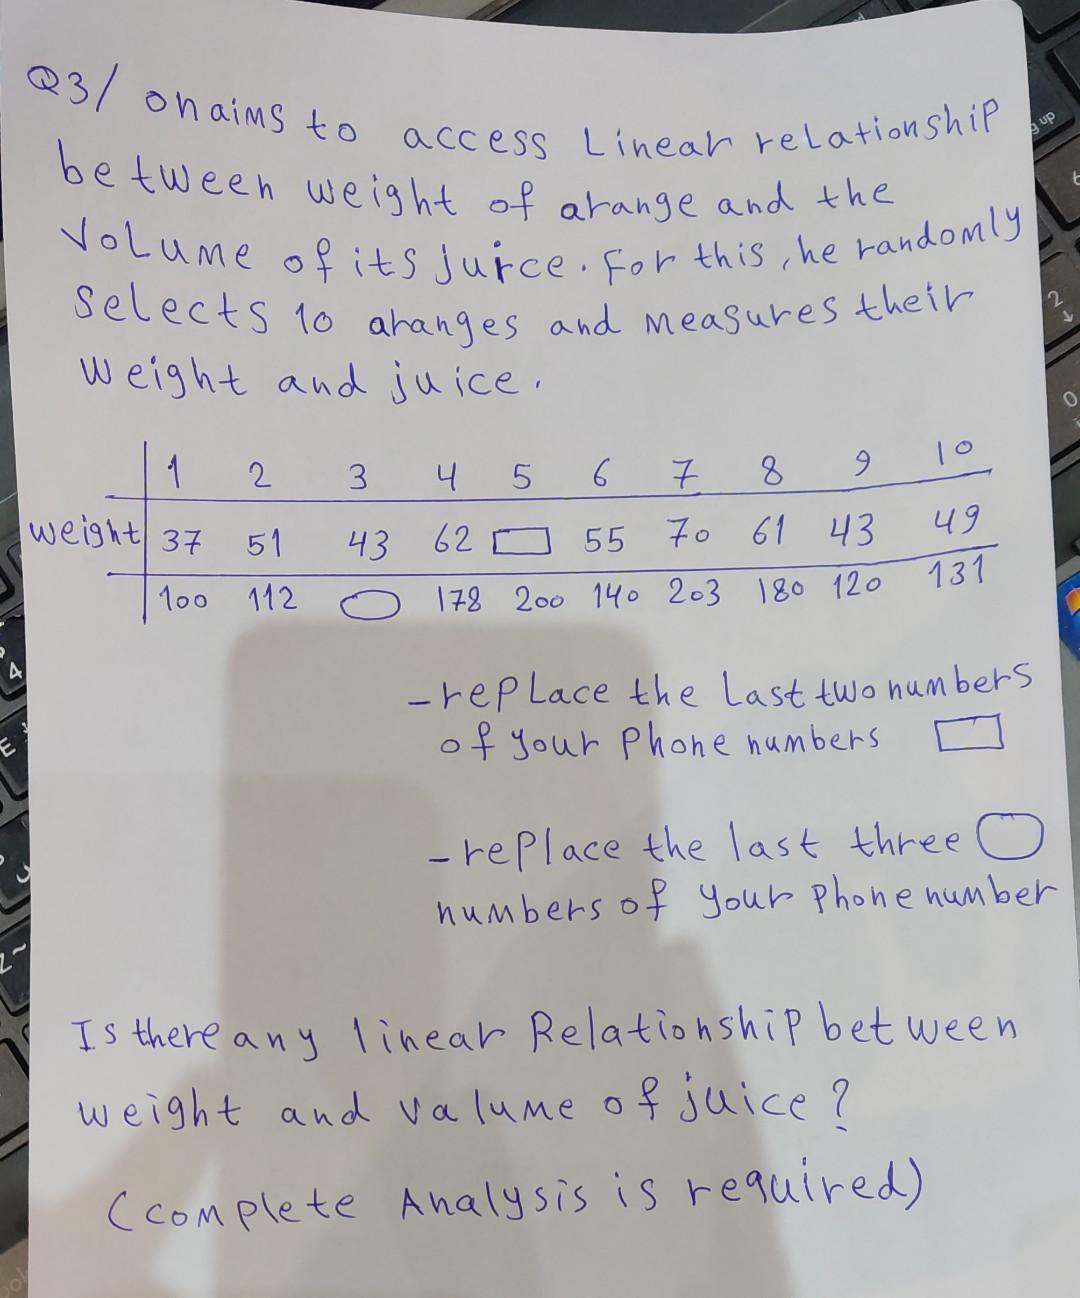 Q3/ onaims to access Linear relationship
between weight of arange and the
Volume of its juice. For this, he randomly
selects 10 aranges and measures their
weight and juice.
1 2 3 4 5 6 7 8 9 10
weight 37 51 43 62 55 70 61 43 49
100 112 178 200 140 203 180 120 131
- replace the Last two numbers
of your Phone numbers
- replace the last three
numbers of your phone number
Is there any linear Relationship between
weight and valume of juice?
(complete Analysis is required)